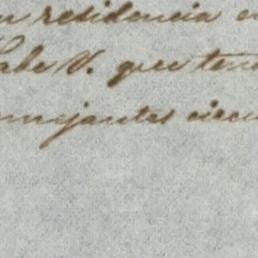 n residencia e
Sabe V. que ten
emejantes circu